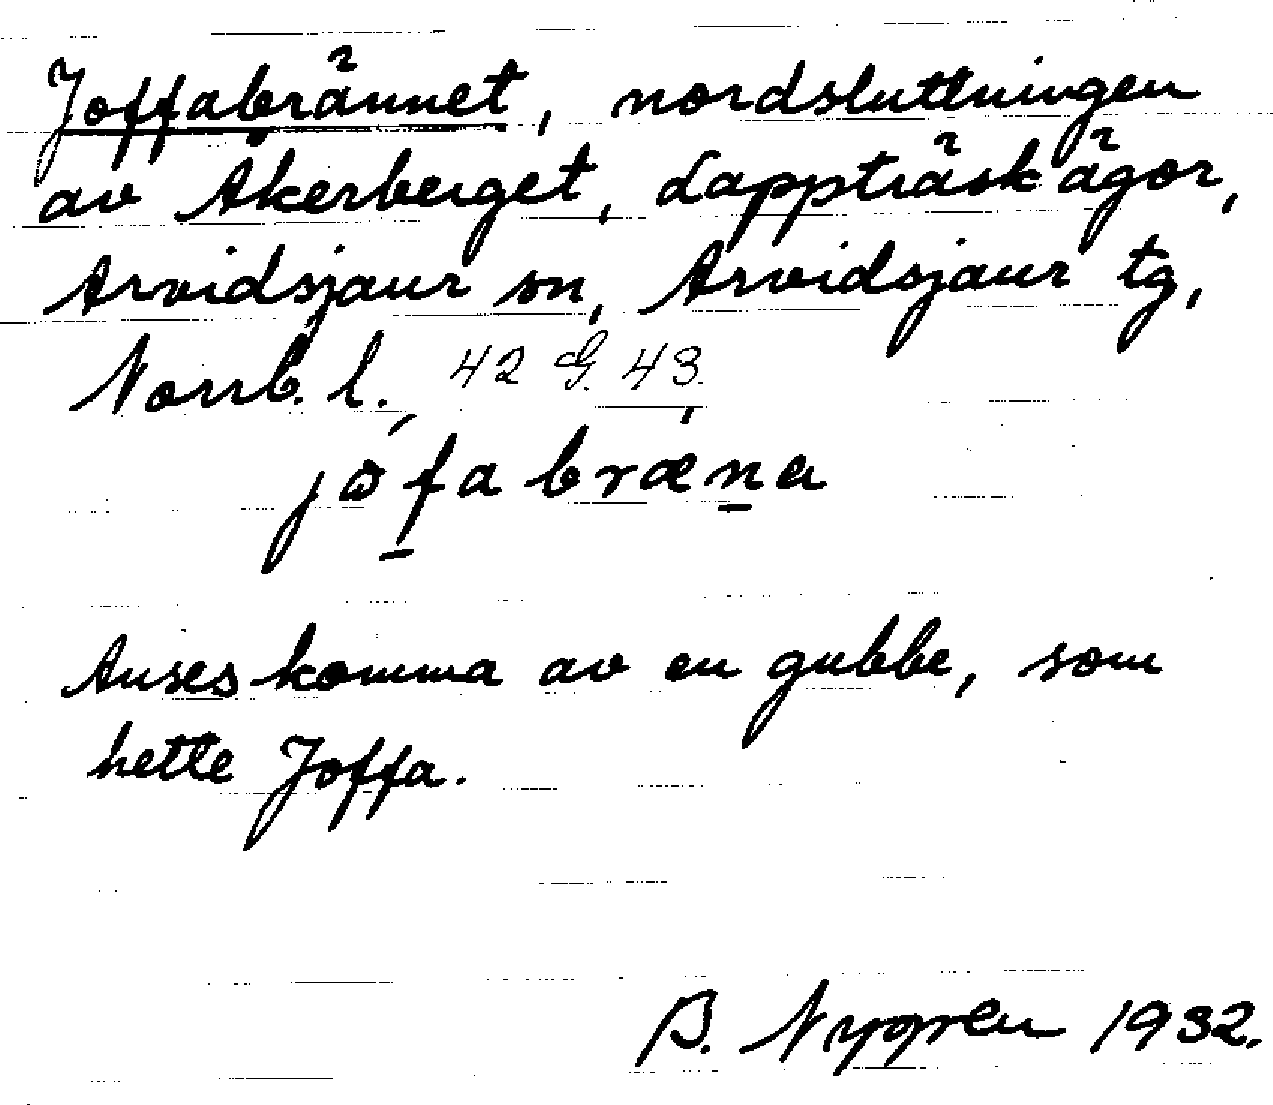 Joffabrännet, nordsluttningen
av Åkerberget, Lappträsk ägor,
Arvidsjaur sn, Arvidsjaur tg,
Norrb. l. 42 G. 43.
jåfabræna
Anses komma av en gubbe, som
hette Joffa.
B. Nygren 1932.